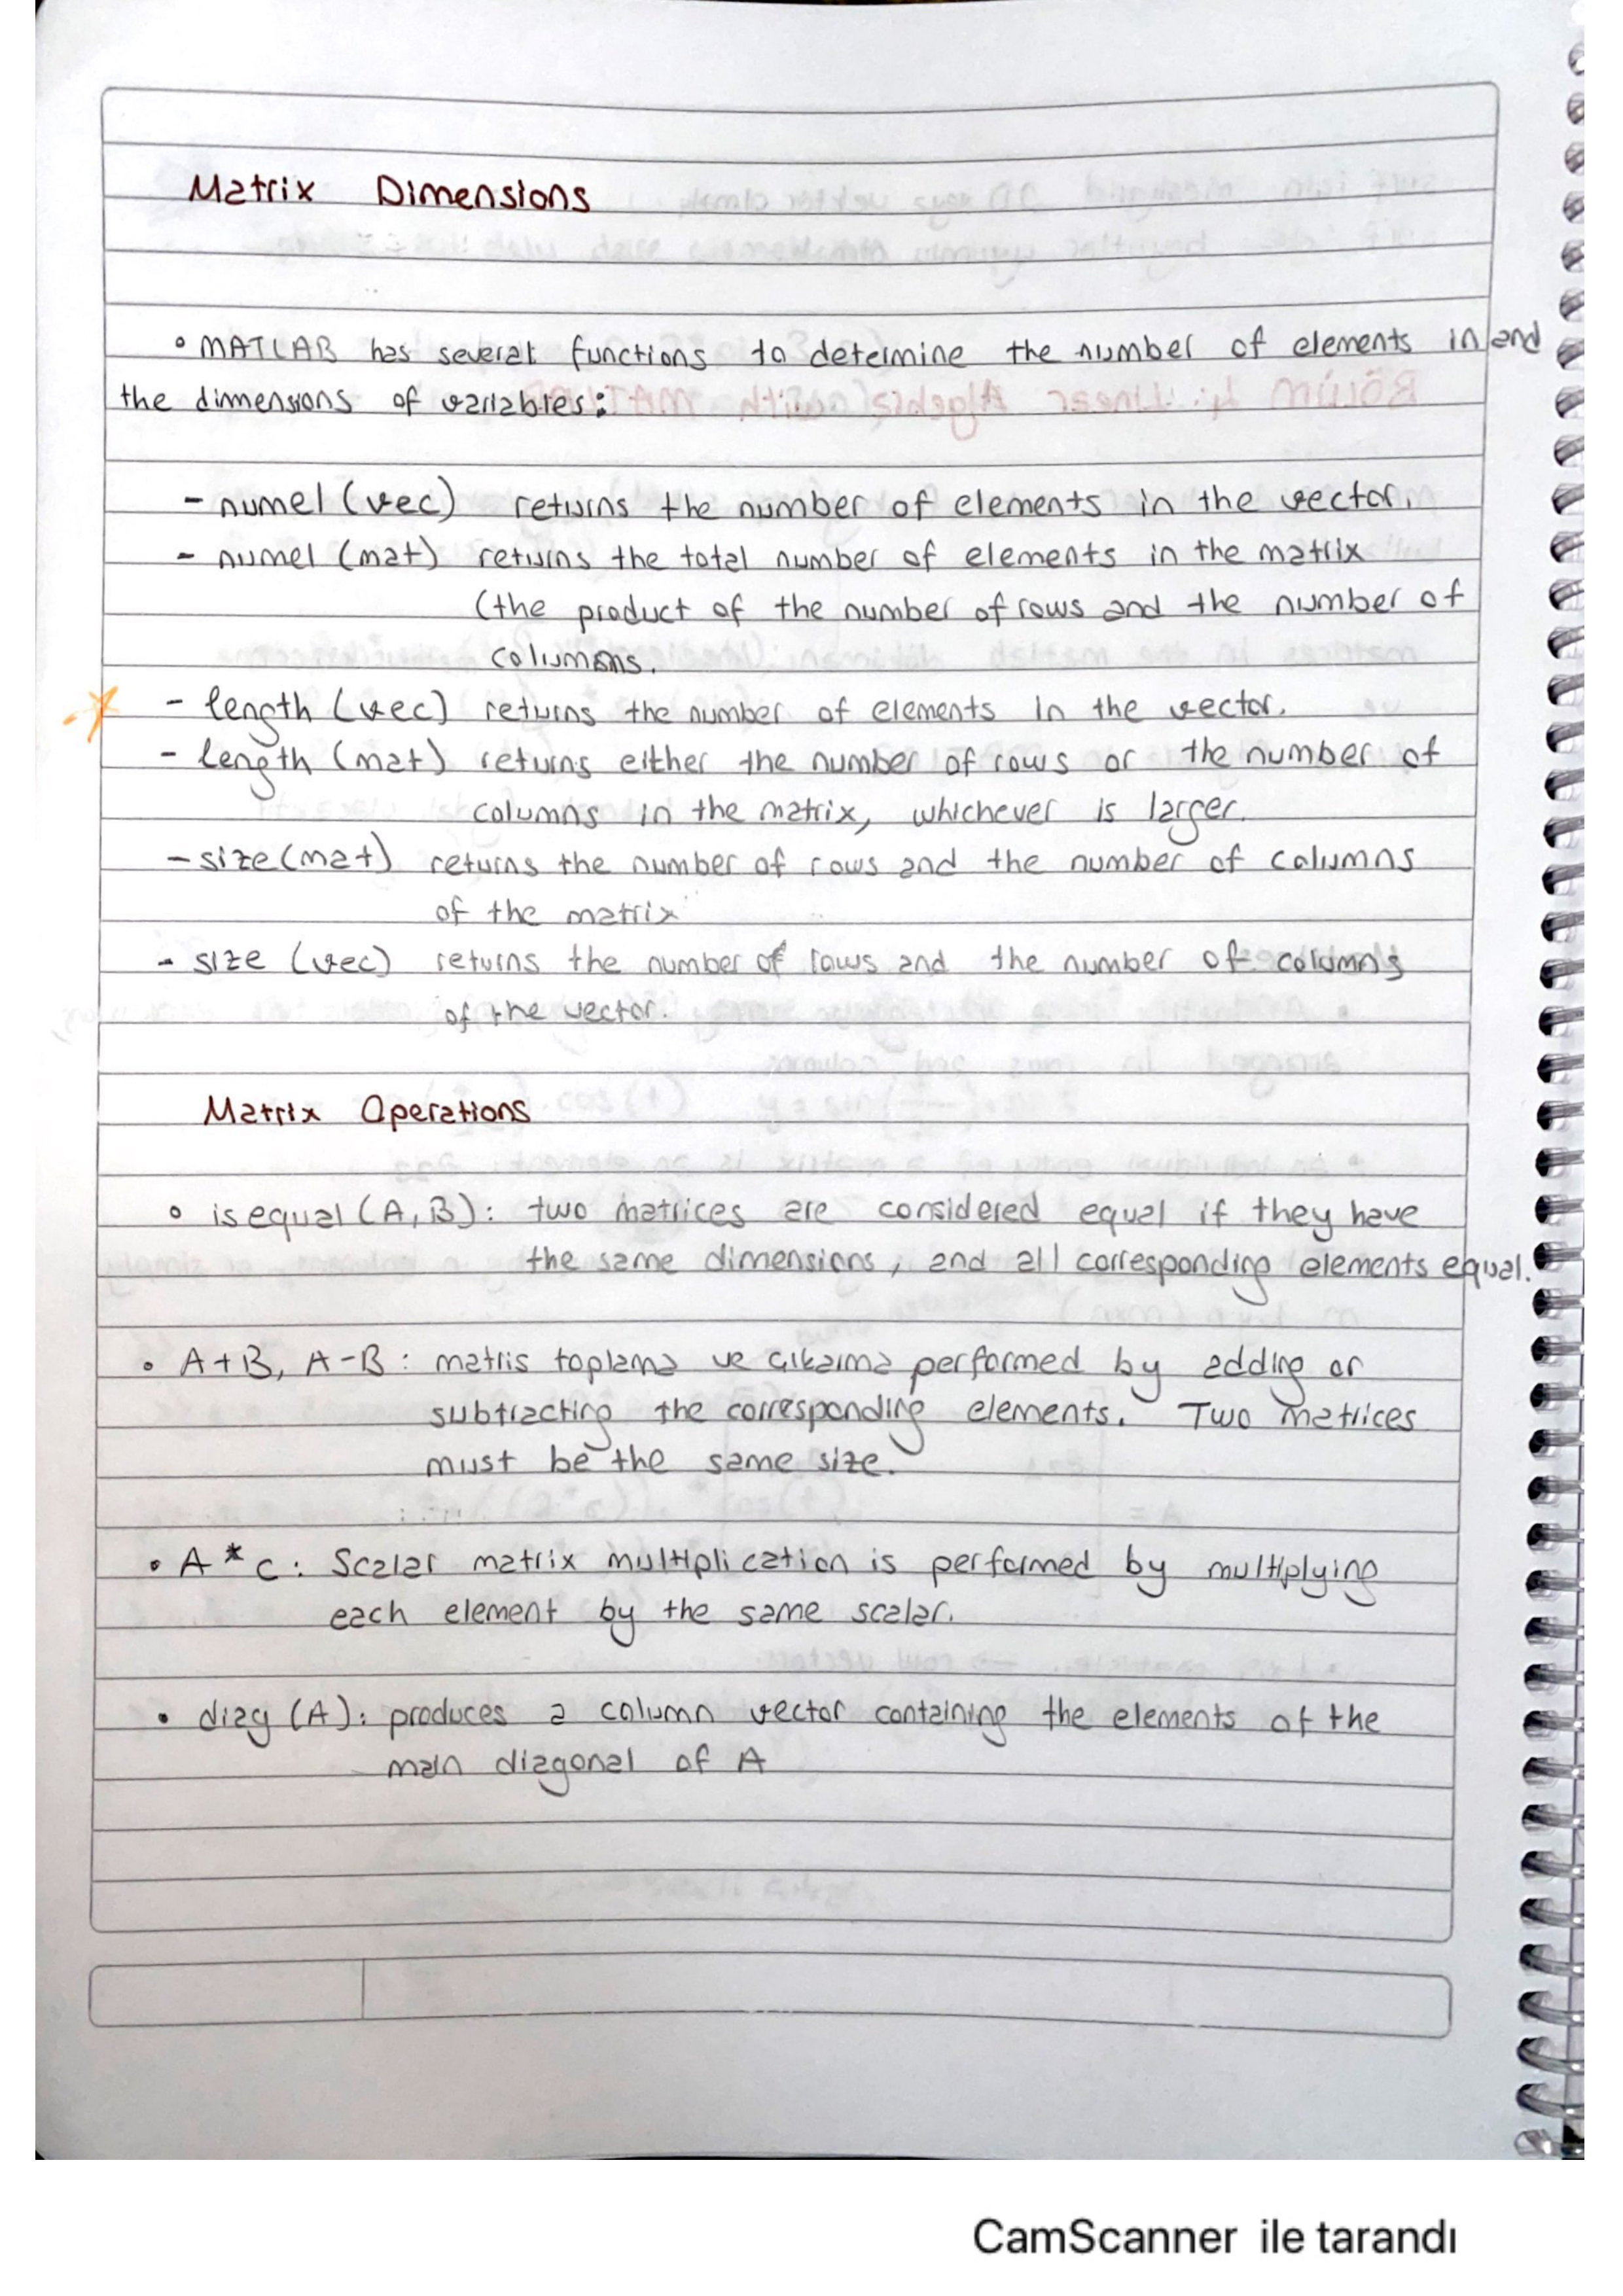 Matrix Dimensions
° MATLAB has several functions to determine the number of elements in and
the dimensions of variables:
- numel (vec) returns the number of elements in the vector.
- numel (mat) returns the total number of elements in the matrix
(the product of the number of rows and the number of
columns.
- length (vec) returns the number of elements in the vector.
- length (mat) returns either the number of rows or the number of
columns in the matrix, whichever is larger.
- size (mat) returns the number of rows and the number of columns
of the matrix
- size (vec) returns the number of rows and the number of columns
of the vector.
Matrix Operations
° isequal (A, B): two matrices are considered equal if they have
the same dimensions, and all corresponding elements equal.
• A+B, A-B : matris toplama ve çıkarma performed by adding or
subtracting the corresponding elements. Two matrices
must be the same size.
• A * c : Scalar matrix multiplication is performed by multiplying
each element by the same scalar.
• diag (A): produces a column vector containing the elements of the
main diagonal of A
CamScanner ile tarandı